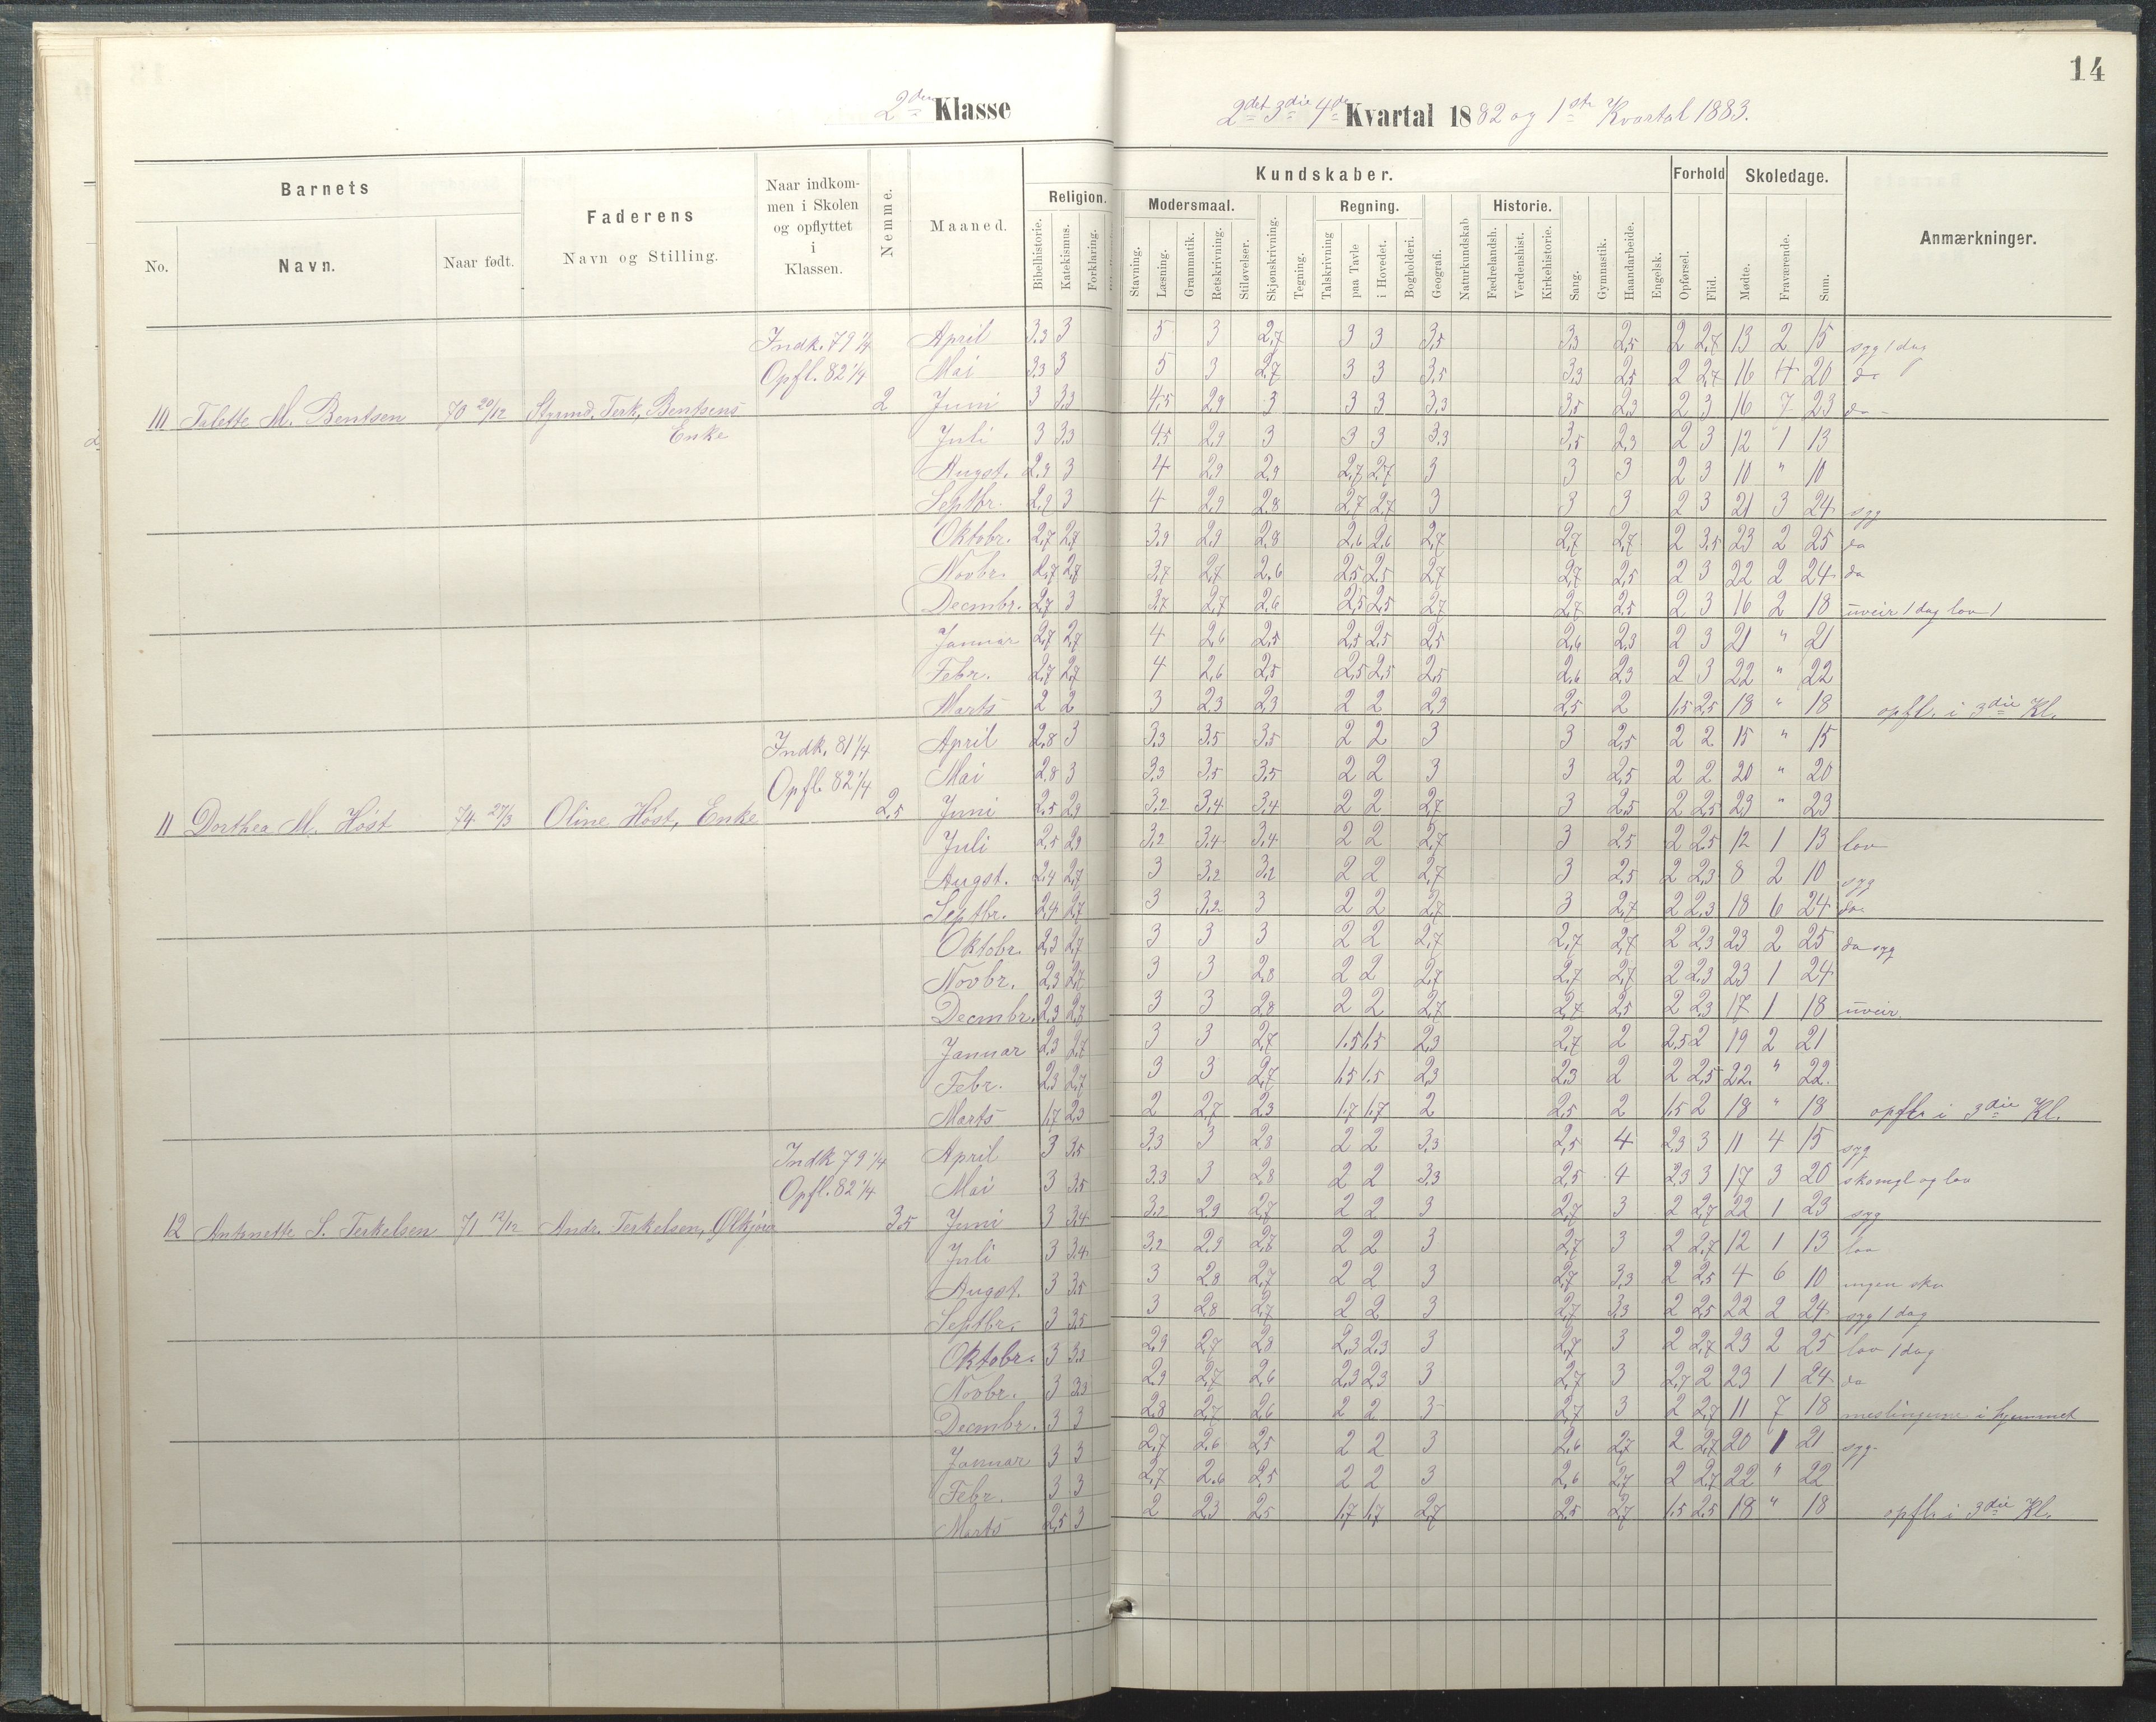 14
2den Klasse
2det 3die 4de Kvartal 1882 og 1ste Kvartal 1883.
Barnets
No.
Navn.
Naar født.
Faderens
Navn og Stilling.
Naar indkom-
men i Skolen
og opflyttet
i
Klassen.
Nemme.
Maaned.
Kundskaber.
Religion.
Bibelhistorie.
Katekismus.
Forklaring.
Modersmaal.
Stavning.
Læsning.
Grammatik.
Retskrivning.
Stiløvelser.
Skjønskrivning.
Tegning.
Regning.
Talskrivning
paa Tavle
i Hovedet.
Bogholderi.
Geografi.
Naturkundskab
Historie.
Fædrelandsh.
Verdenshist.
Kirkehistorie.
Sang.
Gymnastik.
Haandarbeide.
Engelsk.
Forhold
Opførsel.
Flid.
Skoledage.
Mødte.
Fraværende.
Sum.
Anmærkninger.
Indk. 79 1/4 April 3.3 3 5 3 2,7 3 3 3,5 3,3 2,5 2 2,7 13 2 15 syg 1 dag
Opfl. 82 1/4 Mai 3.3 3 5 3 2,7 3 3 3,5 3,3 2,5 2 2,7 16 4 20 do
10 Talette M. Bentsen 70 20/12 Styrmd. Terk. Bentsens 2 Juni 3 3.3 4,5 2,9 3 3 3 3,3 3,5 2,3 2 3 16 7 23 do
Enke Juli 3 3.3 4,5 2,9 3 3 3 3,3 3,5 2,3 2 3 12 1 13
Augst. 2,9 3 4 2,9 2,9 2,7 2,7 3 3 3 2 3 10 " 10
Septbr. 2,9 3 4 2,9 2,8 2,7 2,7 3 3 3 2 3 21 3 24 syg
Oktobr. 2,7 2,7 3,9 2,9 2,8 2,6 2,6 2,7 2,7 2,7 2 3,5 23 2 25 do
Novbr. 2,7 2,7 3,7 2,7 2.6 2,5 2,5 2,7 2,7 2,5 2 3 22 2 24 do
Decmbr. 2,7 3 3,7 2,7 2,6 2,5 2,5 2,7 2,7 2,5 2 3 16 2 18 uveir 1 dag lov 1
Januar 2,7 2,7 4 2,6 2,5 2,5 2,5 2,5 2,6 2,3 2 3 21 " 21
Febr. 2,7 2,7 4 2,6 2,5 2,5 2,5 2,5 2,6 2,3 2 3 22 " 22
Marts 2 2 3 2,3 2,3 2 2 2,3 2,5 2 1,5 2,5 18 " 18 opfl. i 3die Kl.
Indk. 81 1/4 April 2,8 3 3,3 3,5 3,5 2 2 3 3 2,5 2 2 15 " 15
Opfl. 82 1/4 Mai 2,8 3 3,3 3,5 3,5 2 2 3 3 2,5 2 2 20 " 20
11 Dorthea M. Høst 74 27/3 Oline Høst, Enke 2,5 Juni 2,5 2,9 3,2 3,4 3,4 2 2 2,7 3 2,5 2 2,5 23 " 23
Juli 2,5 2,9 3,2 3,4 3,4 2 2 2,7 3 2,5 2 2,5 12 1 13 lov
Augst. 2,4 2,7 3 3,2 3,2 2 2 2,7 3 2,5 2 2,3 8 2 10 syg
Septbr. 2,4 2,7 3 3,2 3 2 2 2,7 3 2,7 2 2,3 18 6 24 do
Oktobr. 2,3 2,7 3 3 3 2 2 2,7 2,7 2,7 2 2,3 23 2 25 do syg
Novbr. 2,3 2,7 3 3 2,8 2 2 2,7 2,7 2,7 2 2,3 23 1 24
Decmbr. 2,3 2,7 3 3 2,8 2 2 2,7 2,7 2,5 2 2,3 17 1 18 uveir.
Januar 2,3 2,7 3 3 2,7 1.5 1.5 2,3 2,7 2 2,5 2 19 2 21
Febr. 2,3 2,7 3 3 2,7 1,5 1.5 2,3 2,3 2 2 2,5 22. " 22.
Marts 1,7 2,3 2 2,7 2,3 1.7 1.7 2 2,5 2 1.5 2 18 " 18 opfl. i 3die Kl.
Indk 79 1/4 April 3 3,5 3,3 3 2,8 2 2 3,3 2,5 4 2,3 3 11 4 15 syg
Opfl. 82 1/4 Mai 3 3,5 3,3 3 2,8 2 2 3,3 2,5 4 2,3 3 17 3 20 skomgl og lov
12 Antonette S. Terkelsen 71 12/12 Andr. Terkelsen, Ølkjøra 3,5 Juni 3 3,4 3,2 2,9 2,7 2 2 3 2,7 3 2 2,7 22 1 23 syg
Juli 3 3,4 3,2 2,9 2,7 2 2 3 2,7 3 2 2,7 12 1 13 lov
Augst. 3 3,5 3 2,8 2,7 2 2 3 2,7 3,3 2 2,5 4 6 10 ingen sko
Septbr. 3 3,5 3 2,8 2,7 2 2 3 2,7 3,3 2 2,5 22 2 24 syg 1 dag
Oktobr. 3 3,3 2,9 2,7 2,8 2,3 2,3 3 2,7 3 2 2,7 23 2 25 lov 1 dag
Novbr. 3 3,3 2,9 2,7 2,6 2,3 2,3 3 2,7 3 2,7 2 23 1 24 do
Decmbr. 3 3 2,8 2,7 2,6 2 2 3 2,7 3 2 2,7 11 7 18 meslingerne i hjemmet
Januar 3 3 2,7 2,6 2,5 2 2 3 2,6 2,7 2 2,7 20 1 21 syg
Febr. 3 3 2,7 2.6 2,5 2 2 3 2,6 2,7 2 2,7 22 " 22
Marts 2,5 3 2 2,3 2,5 1,7 1,7 2,7 2,5 2,7 1.5 2.5 18 " 18 opfl. i 3die Kl.